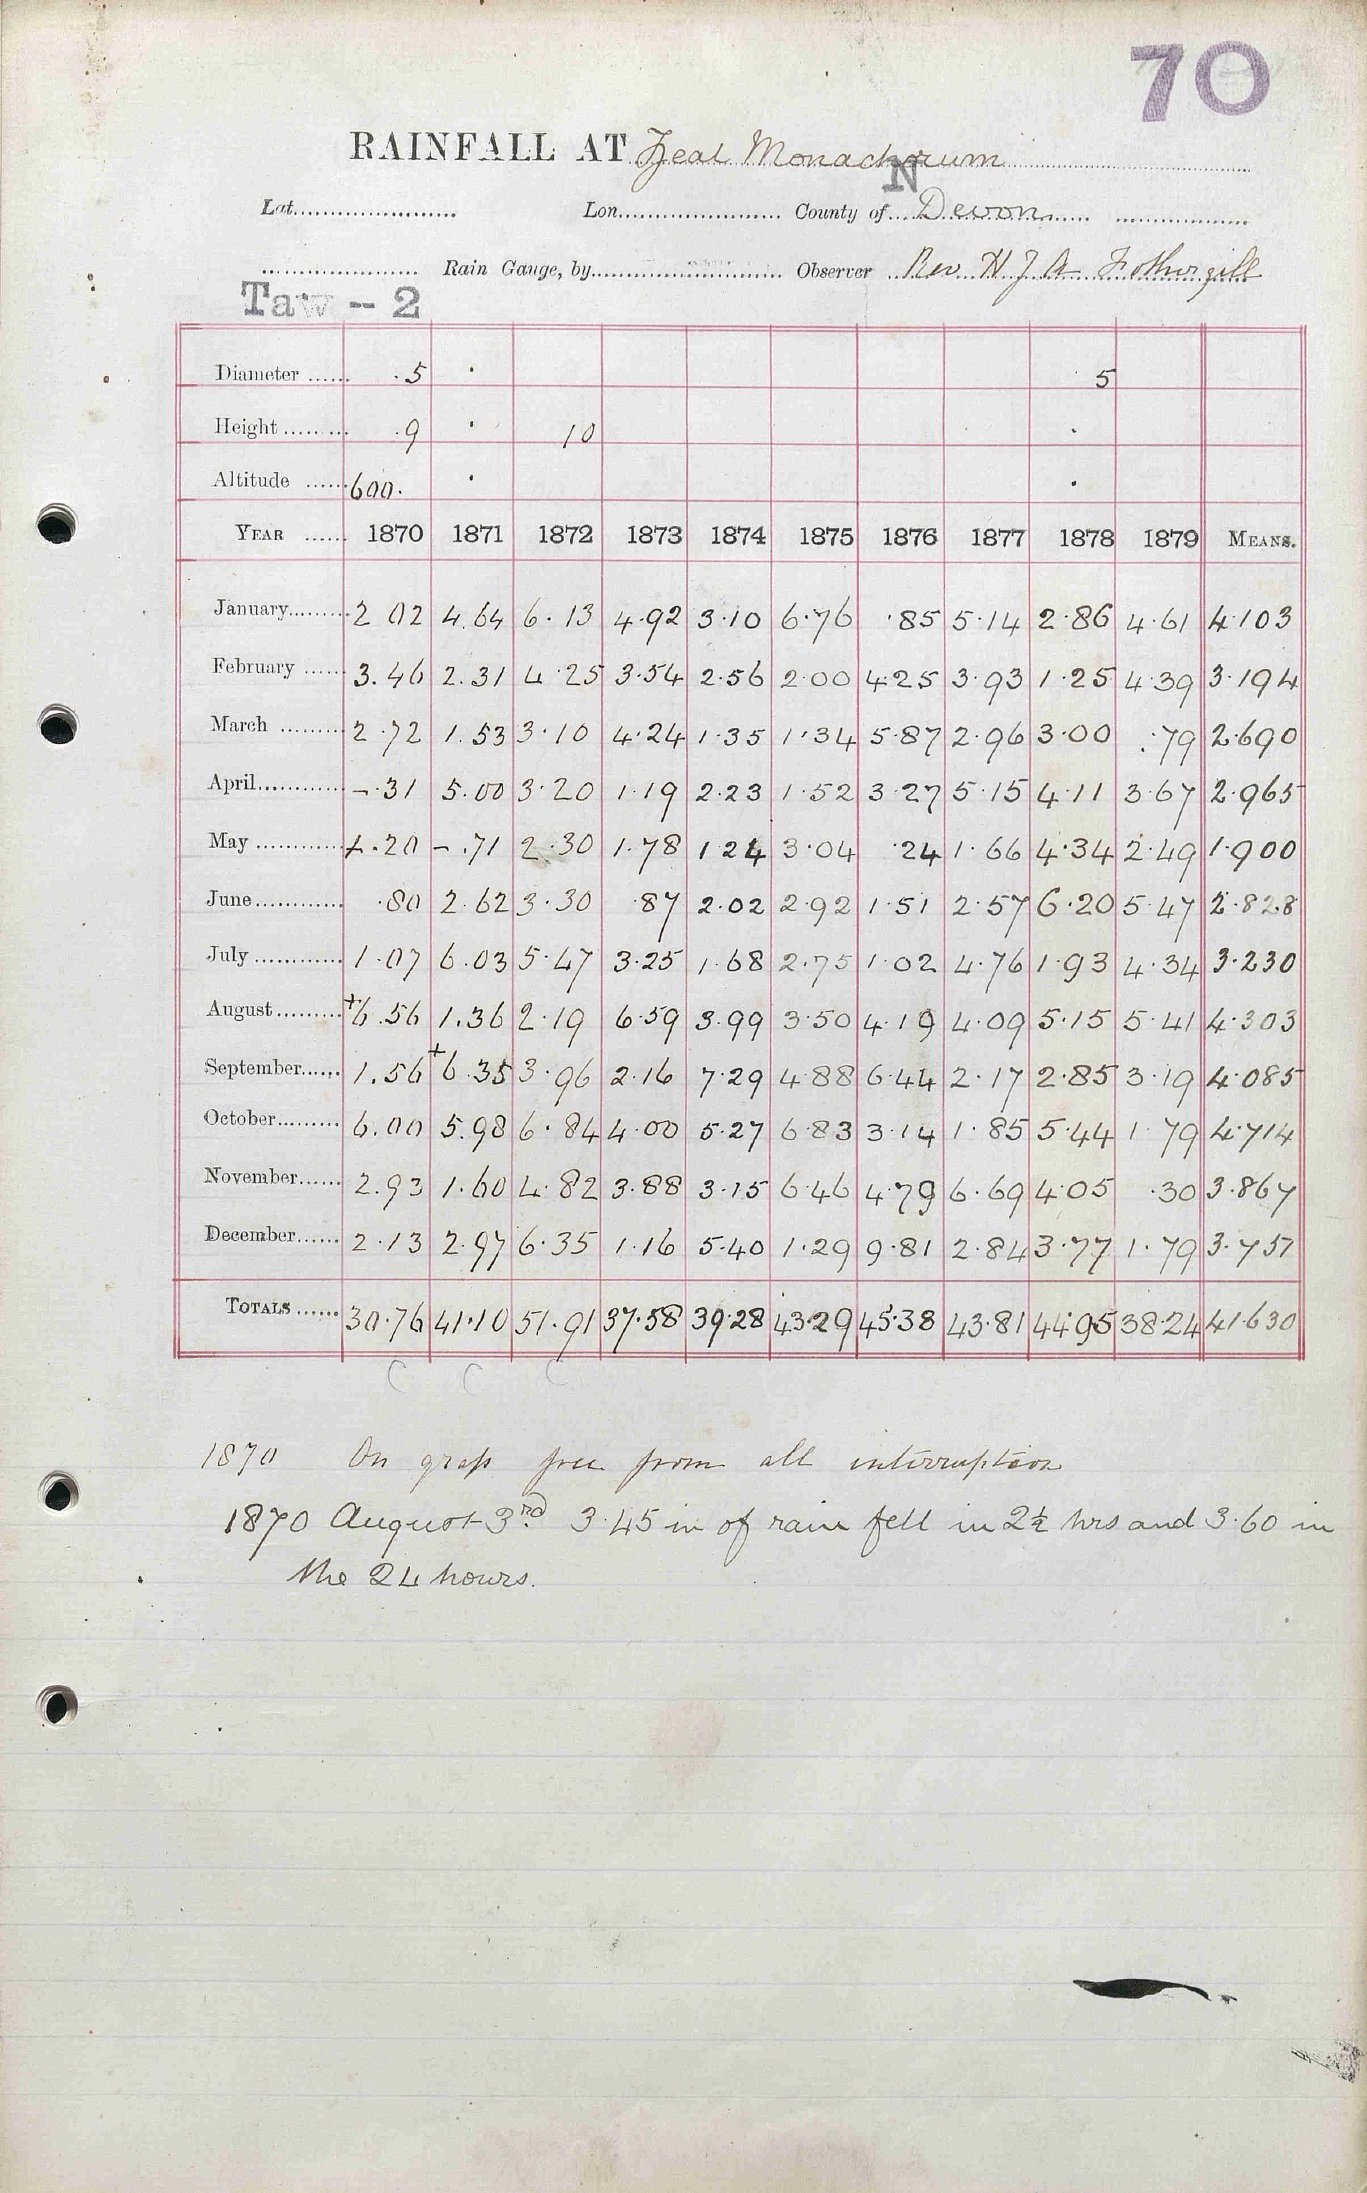 70
RAINFALL AT Zeal Monachorum
N
Lat. Lon. County of Devon
Rain Gauge, by Observer Rev H J A Fothergill
Taw - 2
Diameter 5 · 5
Height 9 · 10 ·
Altitude 600. · ·
YEAR 1870 1871 1872 1873 1874 1875 1876 1877 1878 1879 MEANS.
January 2 02 4.64 6.13 4.92 3.10 6.76 .85 5.14 2.86 4.61 4.103
February 3.46 2.31 4.25 3.54 2.56 2.00 4.25 3.93 1.25 4.39 3.194
March 2.72 1.53 3.10 4.24 1.35 1.34 5.87 2.96 3.00 .79 2.690
April -.31 5.00 3.20 1.19 2.23 1.52 3.27 5.15 4.11 3.67 2.965
May 1.20 -.71 2.30 1.78 1 24 3.04 .24 1.66 4.34 2.49 1.900
June .80 2.62 3.30 .87 2.02 2.92 1.51 2.57 6.20 5.47 2.828
July 1.07 6.03 5.47 3.25 1.68 2.75 1.02 4.76 1.93 4.34 3.230
August +6.56 1.36 2.19 6.59 3.99 3.50 4.19 4.09 5.15 5.41 4.303
September 1.56 +6.35 3.96 2.16 7.29 4.88 6.44 2.17 2.85 3.19 4.085
October 6.00 5.98 6.84 4.00 5.27 6.83 3.14 1.85 5.44 1.79 4.714
November 2.93 1.60 4.82 3.88 3.15 6.46 4.79 6.69 4.05 .30 3.867
December 2.13 2.97 6.35 1.16 5.40 1.29 9.81 2.84 3.77 1.79 3.751
TOTALS 30.76 41.10 51.91 37.58 39.28 43.29 45.38 43.81 44.95 38.24 41.630
C C C
1870 On grass free from all interruption
1870 August 3rd 3.45 in of rain fell in 2½ hrs and 3.60 in
the 24 hours.